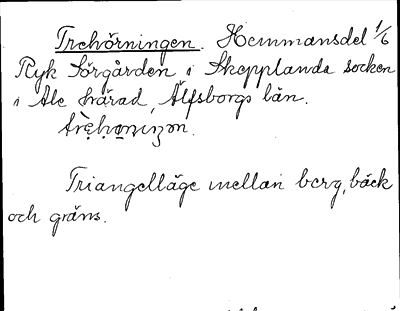 Trehörningen. Hemmansdel 1/6
Ryk Sörgården i Skepplanda socken
i Ale härad, Älfsborgs län.
Triangelläge mellan berg, bäck
och gräns.